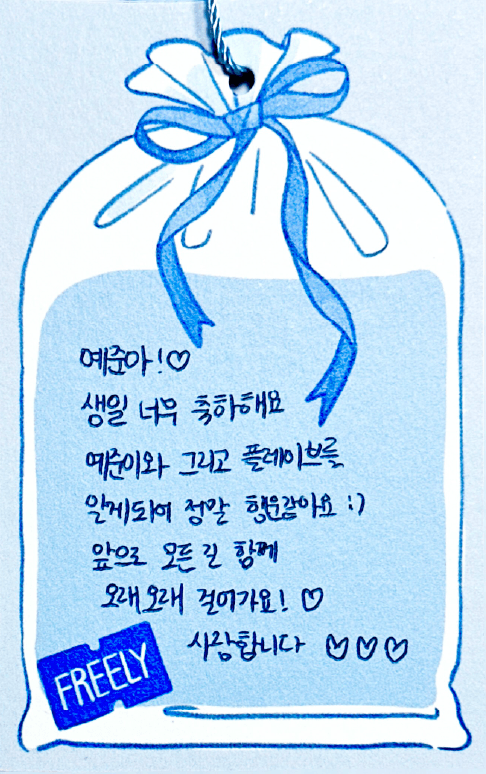 예준아!♡
생일 너무 축하해요
예준이와 그리고 플레이브를
알게되여 정말 행운같아요 :)
앞으로 모든 길 함께
오래오래 걸어가요! ♡
사랑합니다 ♡♡♡
FREELY